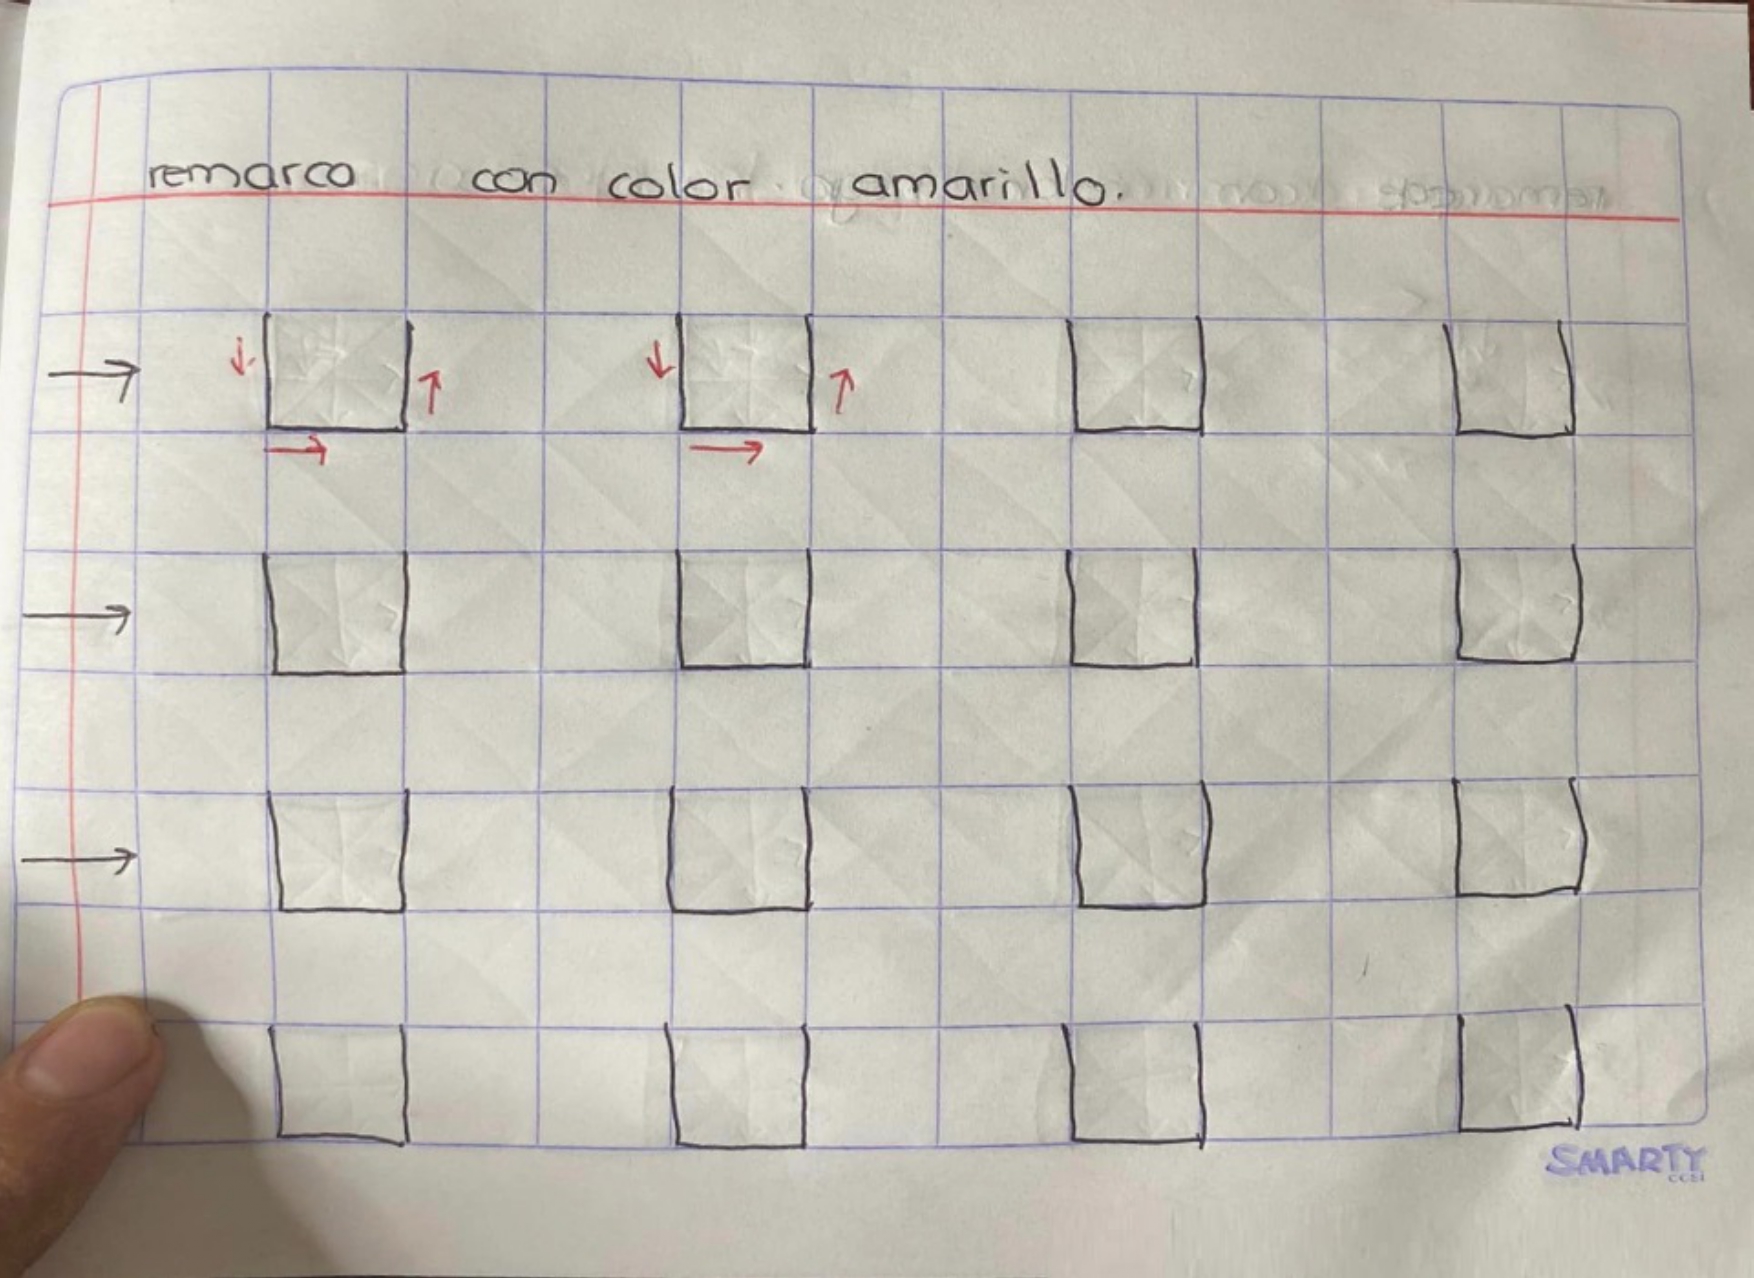 remarco con color amarillo.
SMARTY